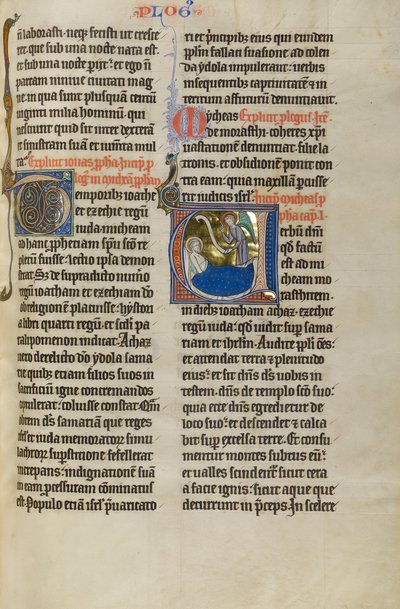 PLOG9
n laborasti neqꝫ fecisti ut cresce
ret que sub una nocte nata est
et sub una nocte periit et ego ñ
parcam niniue ciuitati mag
ne in qua sunt plusquam centū
uiginti milia hominum qui
nesciunt quid sit inter dexterā
et sinistram suā et iumēta mul
ta Explicit ionas ꝓpha Incipit ꝓ
logꝰ in micheā ꝓpham
Temporibus ioathe
et ezechie regū
iuda micheam
ad hanc ꝓphetiam spū sco re
pletum fuisse lectio ipsa demon
strat Sꝫ de supradicto numo
regū ioatham et ezechiam dō
ob religionem placuisse hyston
a libri quarti regū et scdi pa
ralipomenon indicat Achaz
uero derelicto dō ydola sama
rie quibꝫ etiam filios suos in
sacrificiū igne concremandos
optulerat coluisse constat Qm̄
obrem dn̄s samariam que reges
isrl et iuda memoratos simu
lachroꝝ supstitione fefellerat
increpans indignationem suā
in eam pcessuram cōminatus
est Populo etiā isrl p̄uaricato
ri et principibꝫ eius qui eundem
pplm fallaci suasione ad colen
da ydola impulerant uerbis
insequentibꝫ captiuitatē et in
teritum affuturū denunciauit
Explicit plogus Itē
Mycheas
de morasthi coheres xpi
uastationē denunciat filie la
tronis et obsidionem ponit con
tra eam quia maxillā pcusse
rit iudicis isrl Incipit micheas ꝓ
pha cap I
Verbū dn̄i
qd factū
est ad mi
cheam mo
rasthitem
in diebꝫ ioatham achaz ezechie
regū iuda qd uidit sup sama
riam et ihrlm Audite ppli oēs
et attendat terra et plenitudo
eius et sit dn̄s ds̄ uobis in
testem dn̄s de templo sco suo
quia ecce dn̄s egredietur de
loco suo et descendet et calca
bit sup excelsa terre Et consu
mentur montes subtus eū
et ualles scindent sicut cera
a facie ignis sicut aque que
decurrunt in p̄ceps In scelere